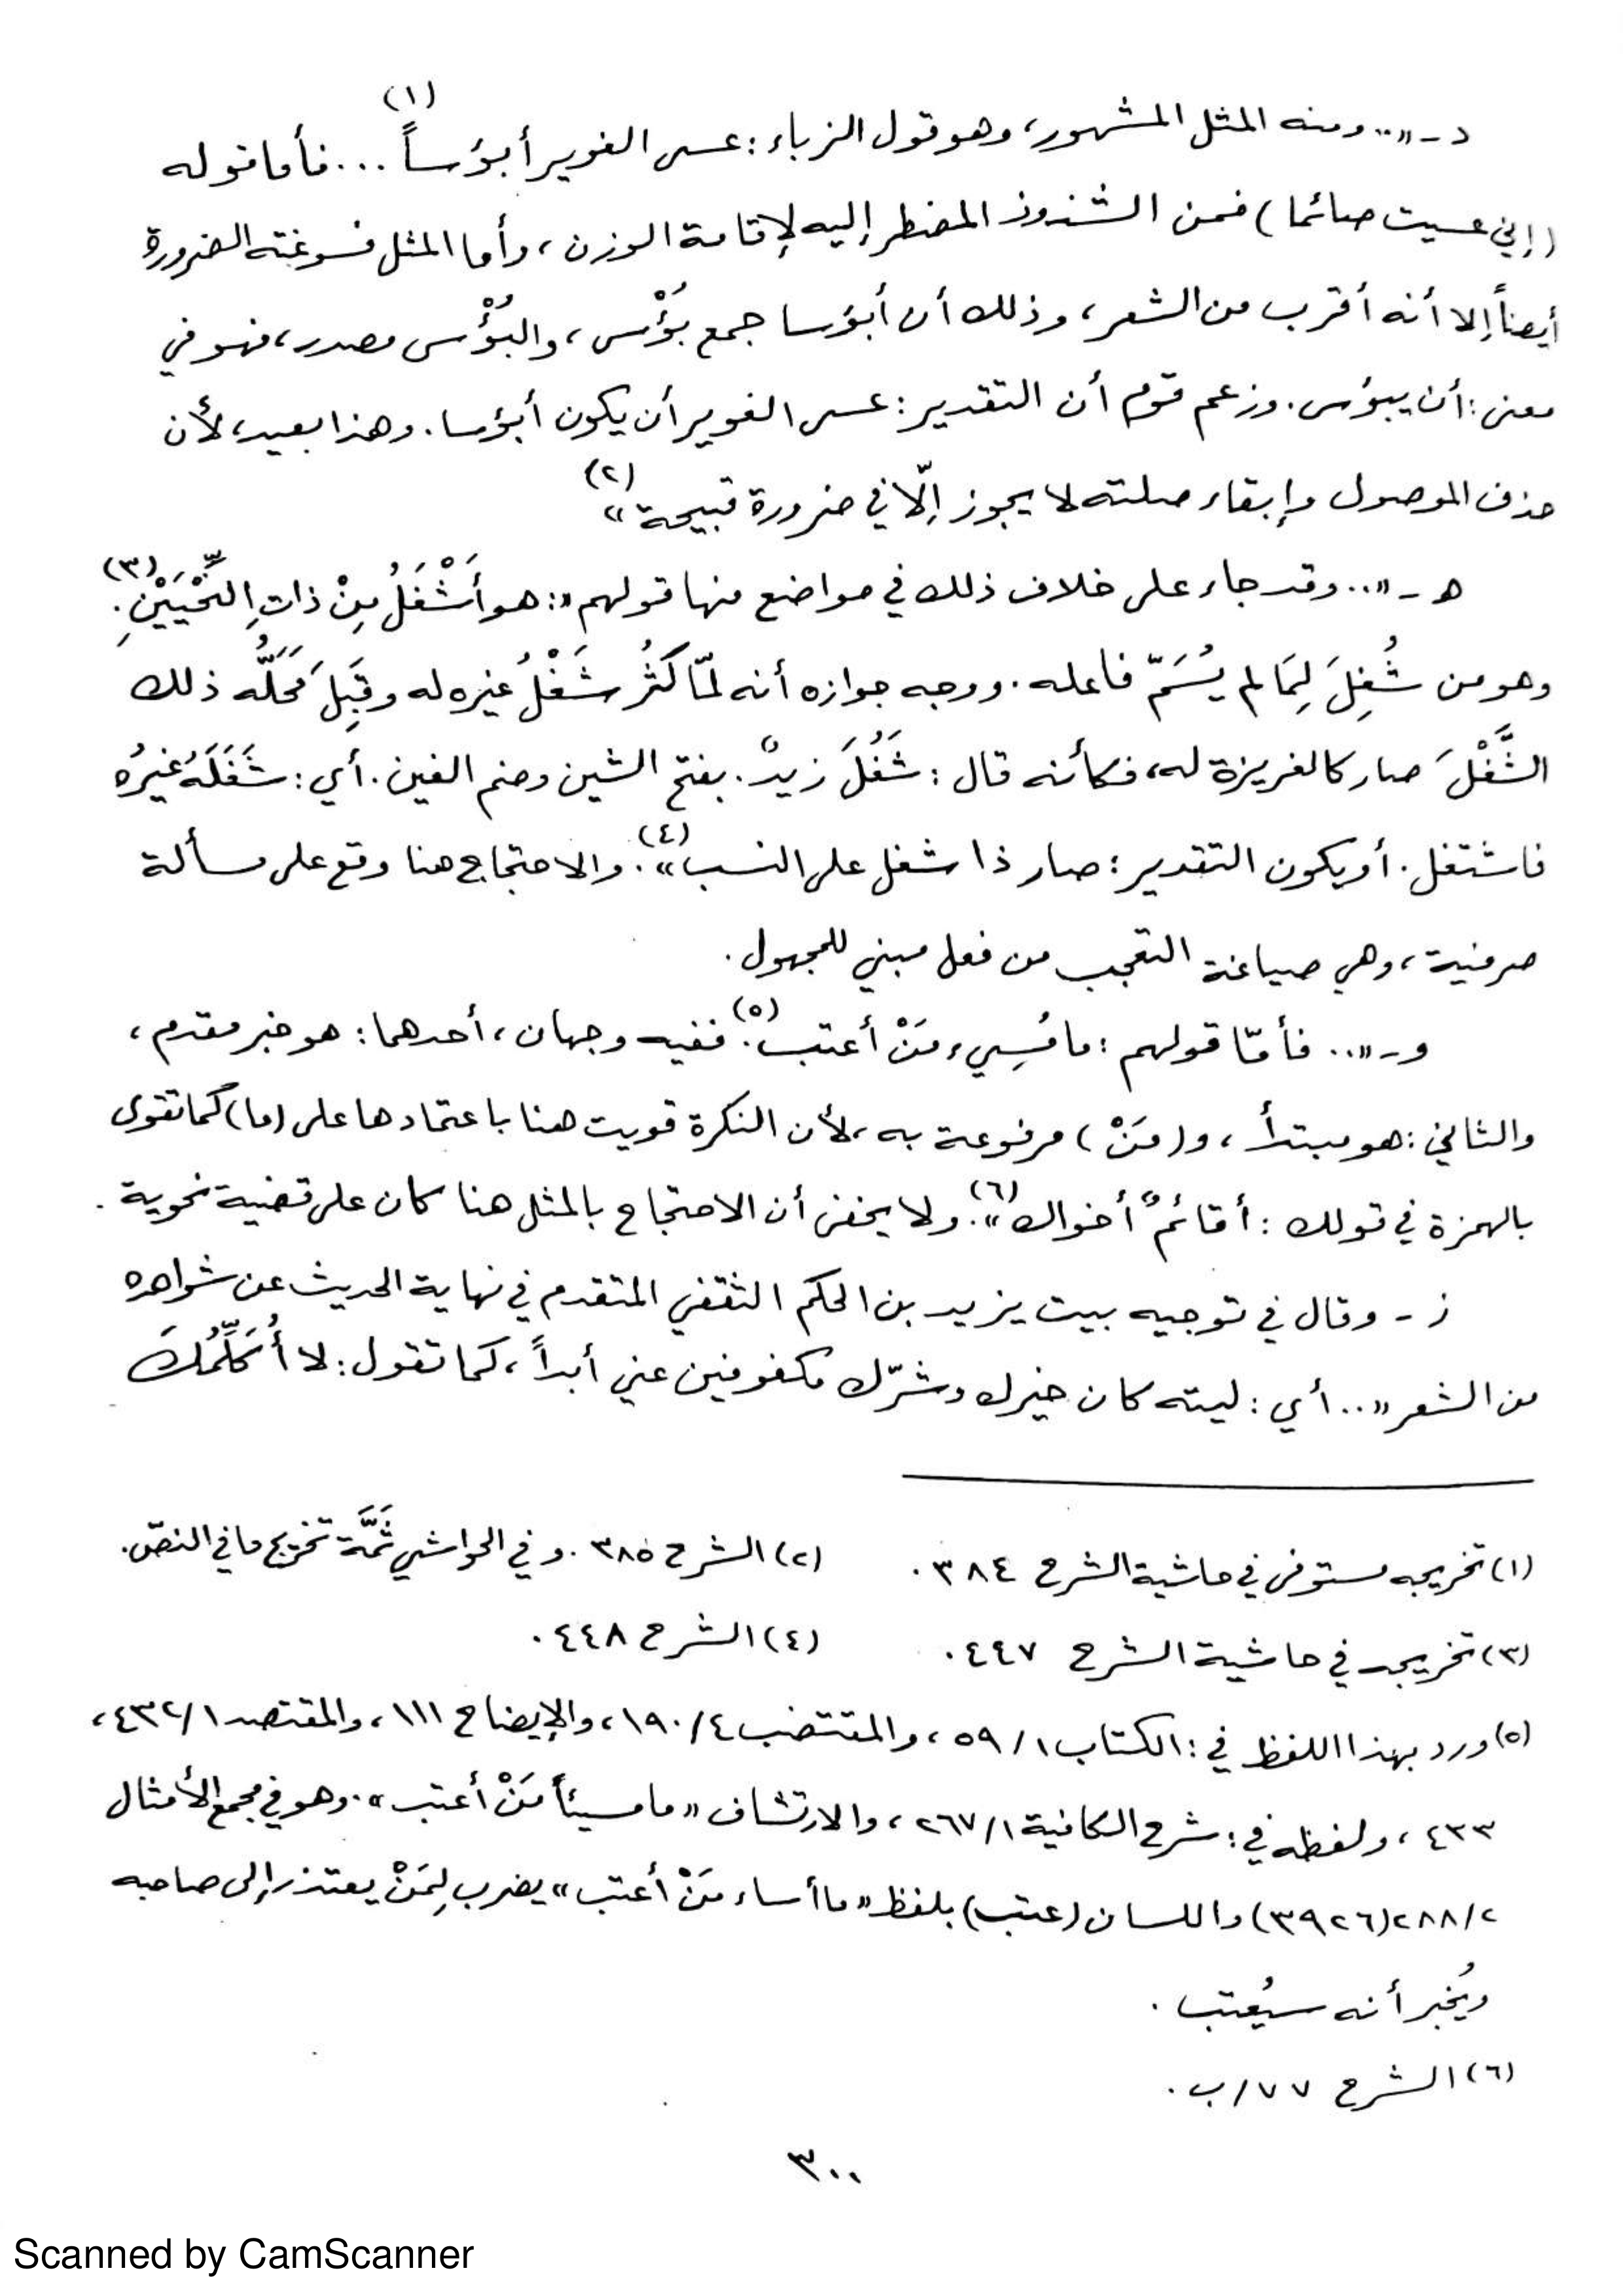 د - «.. ومنه المثل المشهور، وهو قول الزباء : عسى الغوير أبؤساً (١) ... فأما قوله
(إني عسيت صائما) فمن الشذوذ المضطر إليه لإقامة الوزن، وأما المثل فسوغته الضرورة
أيضاً إلا أنه أقرب من الشعر، وذلك أن أبؤسا جمع بُؤْس، والبُؤْس مصدر، فهو في
معنى : أن يبؤس. وزعم قوم أن التقدير : عسى الغوير أن يكون أبؤسا. وهذا بعيد، لأن
حذف الموصول وإبقاء صلته لا يجوز إلّا في ضرورة قبيحة» (٢)
هـ - «.. وقد جاء على خلاف ذلك في مواضع منها قولهم : هو أَشْغَلُ مِنْ ذاتِ النِّحْيَيْنِ (٣).
وهو من شُغِلَ لِمَا لم يُسَمّ فاعله. ووجه جوازه أنه لمّا كَثُر شَغْلُ غيره له وقَبِلَ مَحَلُّه ذلك
الشَّغْلَ صار كالغريزة له، فكأنه قال : شَغُلَ زيدٌ. بفتح الشين وضم الغين. أي : شَغَلَهُ غيرُه
فاشتغل. أو يكون التقدير : صار ذا شغل على النسب» (٤). والاحتجاج هنا وقع على مسألة
صرفية، وهي صياغة التعجب من فعل مبني للمجهول.
و - «.. فأمّا قولهم : ما مُسِيء مَنْ أعتب (٥). ففيه وجهان، أحدهما : هو خبر مقدم،
والثاني : هو مبتدأ، و(مَنْ) مرفوعة به، لأن النكرة قويت هنا باعتمادها على (ما) كما تقوى
بالهمزة في قولك : أقائمٌ أخواك» (٦). ولا يخفى أن الاحتجاج بالمثل هنا كان على قضية نحوية.
ز - وقال في توجيه بيت يزيد بن الحكم الثقفي المتقدم في نهاية الحديث عن شواهده
من الشعر «.. أي : ليته كان خيرك وشرّك مكفوفين عني أبداً، كما تقول : لا أُكَلِّمُكَ
(١) تخريجه مستوفى في حاشية الشرح ٣٨٤. (٢) الشرح ٣٨٥. وفي الحواشي ثَمَّة تخريج ما في النصّ.
(٣) تخريجه في حاشية الشرح ٤٤٧. (٤) الشرح ٤٤٨.
(٥) ورد بهذا اللفظ في : الكتاب ١/ ٥٩، والمقتضب ٤/ ١٩٠، والإيضاح ١١١، والمقتصد ١/ ٤٣٢،
٤٣٣، ولفظه في : شرح الكافية ١/ ٢٦٧، والارتشاف «ما مسيئاً مَنْ أعتب». وهو في مجمع الأمثال
٢/ ٢٨٨ (٣٩٢٦) واللسان (عتب) بلفظ «ما أساء مَنْ أعتب» يضرب لِمَنْ يعتذر إلى صاحبه
ويُخبر أنه سيُعتب.
(٦) الشرح ٧٧/ ب.
٣٠٠
Scanned by CamScanner